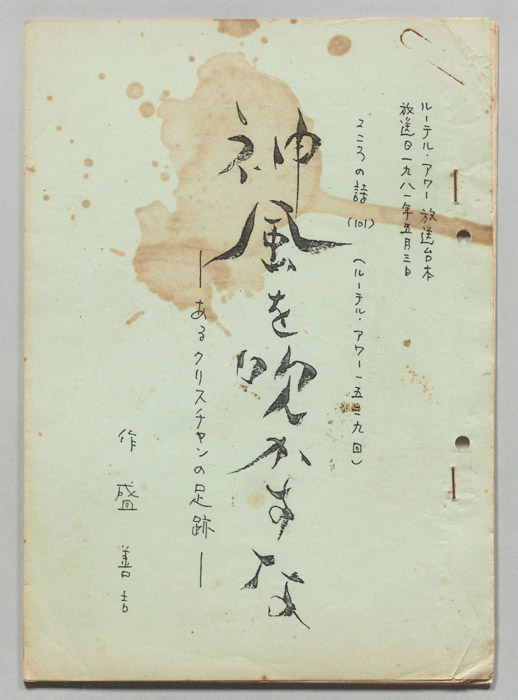 ルーテル・アワー 放送台本
放送日 一九八一年五月三日
こころの話 (101) (ルーテル・アワー 一五二九回)
神風を吹かすな
―あるクリスチャンの足跡―
作 盛善吉